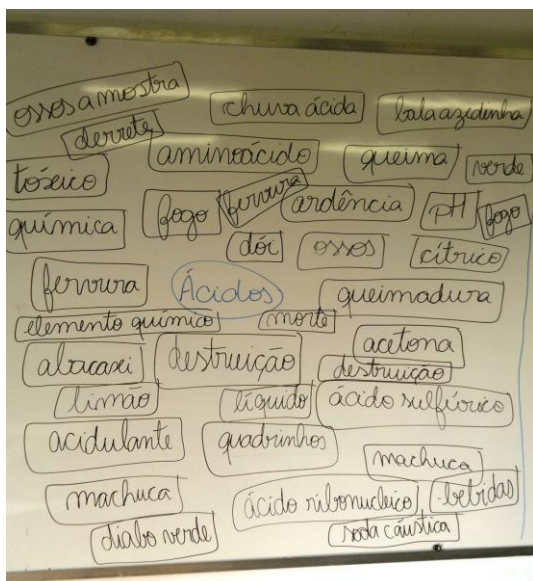 ossos amostra
chuva ácida
bala azedinha
derrete
aminoácido
queima
verde
tóxico
fogo
fervura
ardência
pH
fogo
química
dór
ossos
cítrico
fervura
Ácidos
queimadura
elemento químico
morte
acetona
abacaxi
destruição
destruição
limão
líquido
ácido sulfúrico
acidulante
quadrinhos
machuca
machuca
ácido ribonucleico
bebidas
diabo verde
soda cáustica